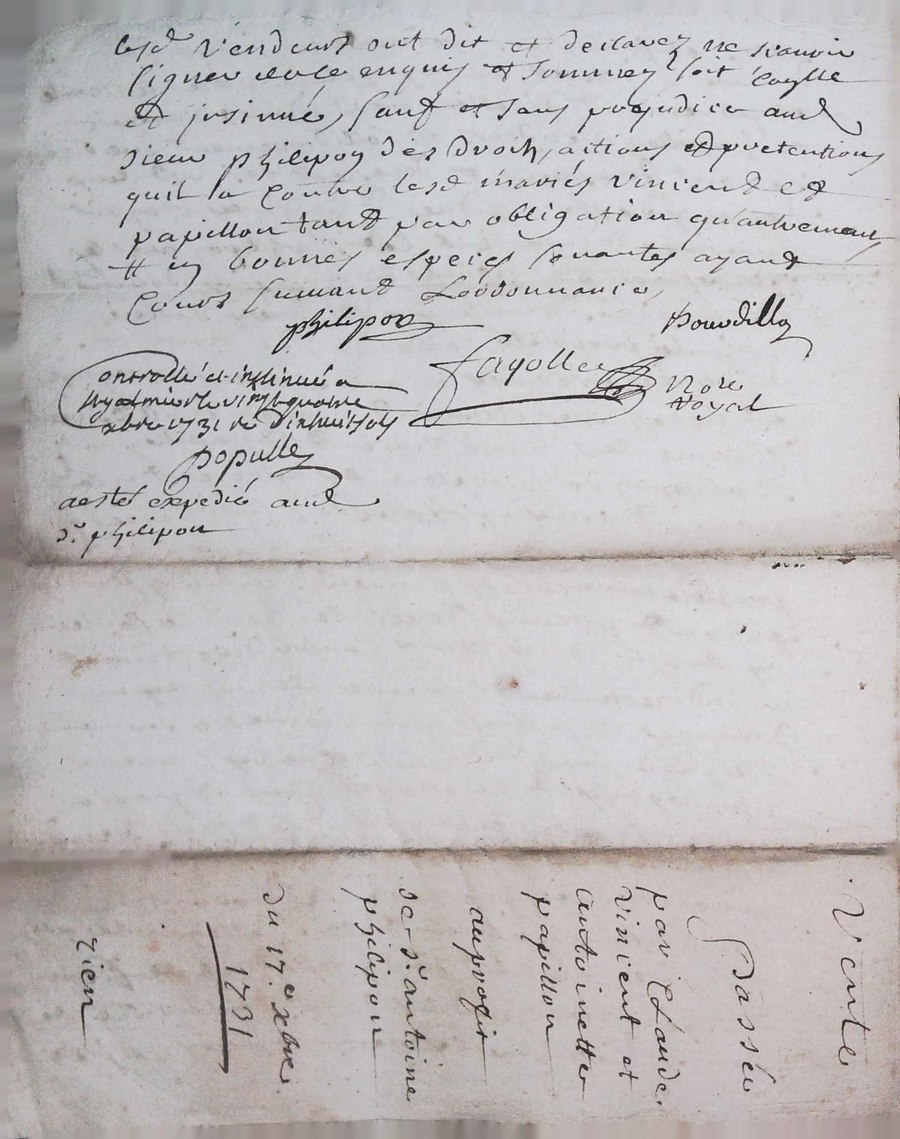 lesd vendeurs ont dit et declarez ne scavoir
signer de ce enquis et sommez soit
et insinué, sauf et sans prejudice aud
sieur philipon des droits, actions et pretentions
quil a contre lesd mariés vincent et
papillon tant par obligation qu'autrement
# en bonnes especes sonantes ayant
cours suivant Lordonnance,
philipon
Bourdillon
fayolle
Nore
Royal
Controllé et insinué a
le vingt quatre
xbre 1731 re dixhuit sols
populle
a esté expedié aud
sr philipon
Vente
Passée
par Claude
vincent et
antoinette
papillon
au profit
de sr antoine
philipon
du 17e xbre
1731
rien